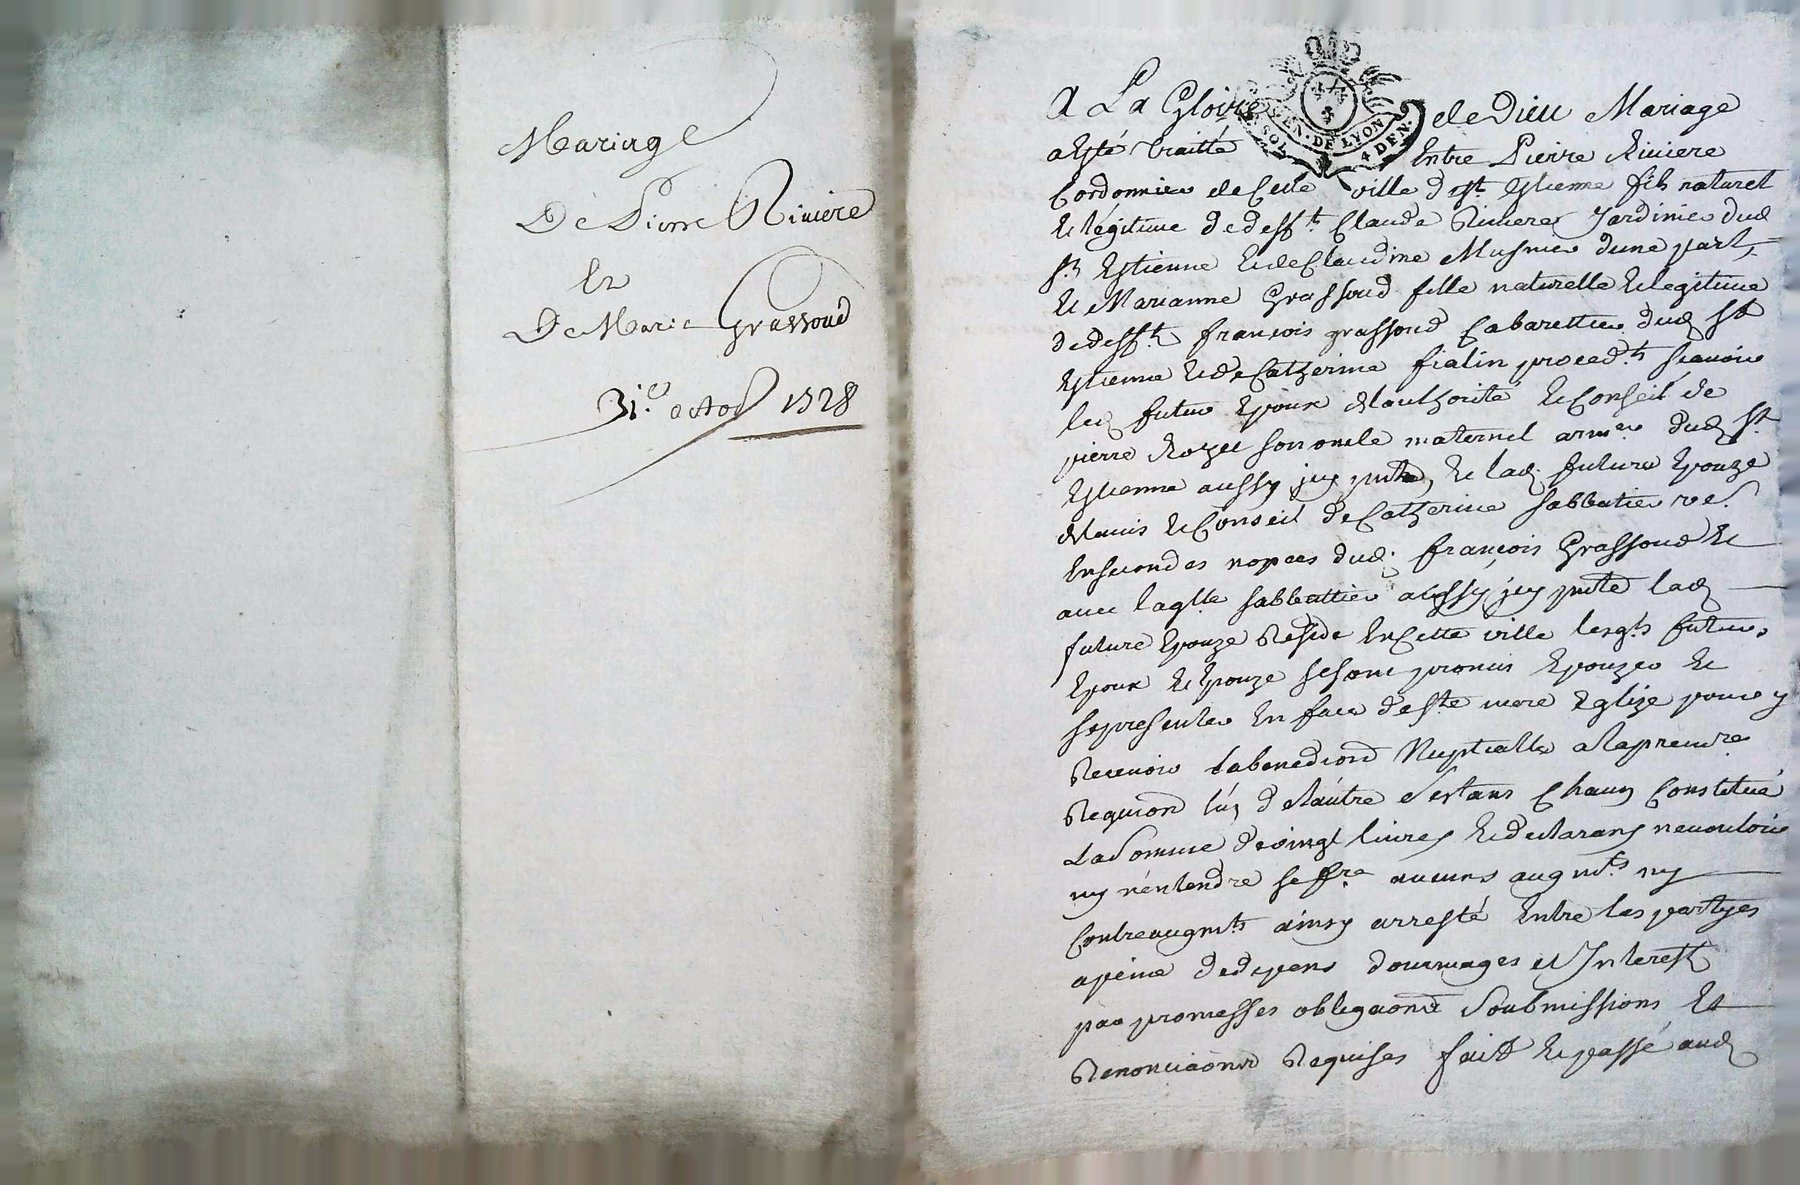 Mariage
De Pierre Riviere
Et
De Marie Grassoud
31.e octob 1728
A La Gloire de Dieu Mariage
GEN. DE LYON
SOL 4 DEN.
a esté traitté Entre Pierre Riviere
Cordonnier de Cette ville de st Estienne fils naturel
et légitime de deff.t Claude Riviere Jardinier dud
st Estienne et de Claudine Musnier dune part,
et Marianne Grassoud fille naturelle et legitime
de deff.t françois grassoud Cabarettier dud st
Estienne et de Catherine fialin proced.ts scavoir
led futur Epoux de lauthorité et Conseil de
pierre Royet son oncle maternel arm.er dud st
Estienne aussy icy pnt, et lad. future Epouze
de lavis et Conseil de Catherine Sabbatier ve.
En secondes nopces dud. françois Grassoud et
avec laqlle sabbattier aussy icy pnte lad
future Epouze Reside En Cette ville lesqls futurs
Epoux et Epouze se sont promis Epouzer et
se presenter En face de s.te mere Eglize pour y
Recevoir la benediction Nuptialle a la premiere
Requion lun de lautre s'estans Chacun Constitué
La Somme de vingt livres et declarans ne vouloir
ny n'entendre se f.re aucuns augm.ts ny
Contreaugm.ts ainsy arresté Entre les partyes
a peine de depens dommages et Interest
par promesses obligaons Soubmissions Et
Renonciaons Requises fait et passé aud